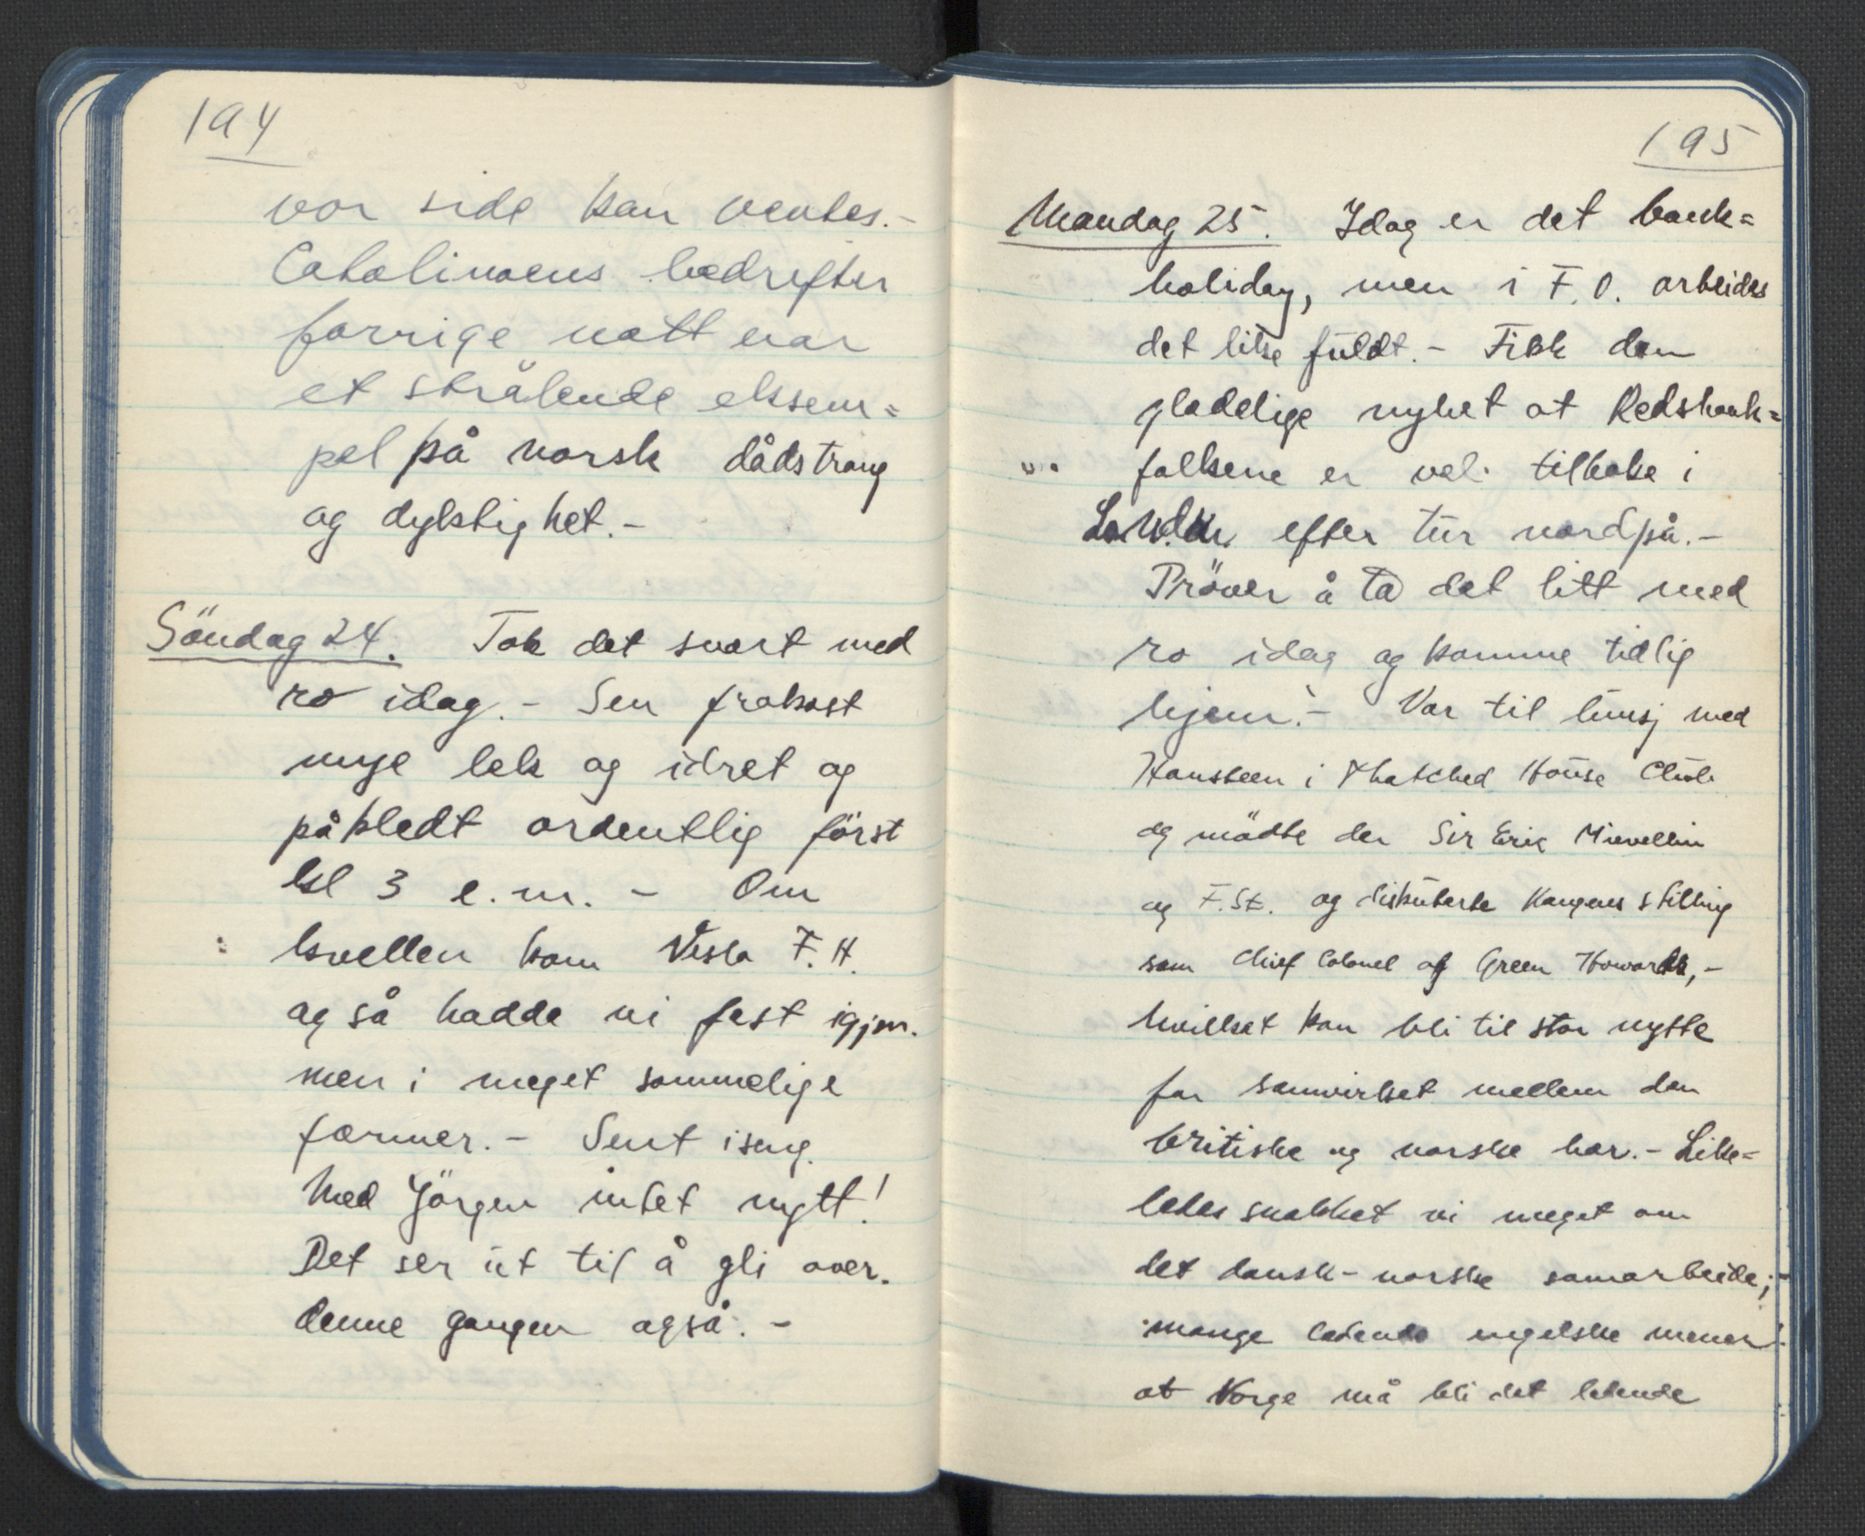 194
vor side kan ventes.-
Catalinaens bedrifter
forrige natt var
et strålende eksem=
pel på norsk dådstrang
og dyktighet.-
Söndag 24. Tok det svært med
ro idag.- Sen frokost
mye lek og idret og
påkledt ordentlig först
kl 3 e.m. - Om
kvellen kom Vesla F.H.
og så hadde vi fest igjen.
men i meget sommelige
former.- Sent iseng.
Med Jörgen intet nytt!
Det ser ut til å gli over.
denne gangen også.-
195
Mandag 25. Idag er det bank=
holiday, men i F.O. arbeides
det like fuldt.- Fikk den
gladelige nyhet at Redshank=
folkene er vel tilbake i
London efter tur nordpå.-
Pröver å ta det litt med
ro idag og komme tidlig
hjem.- Var til lunsj med
Hansteen i Thatched House Club
og mödte der Sir Eric
og F.St. og diskuterte Kongens stilling
som Chief Colonel of Green Howards,-
hvilket kan bli til stor nytte
for samvirket mellem den
britiske og norske hær.- Like=
ledes snakket vi meget om
det dansk-norske samarbeide;
mange ledende engelske mener
at Norge må bli det ledende